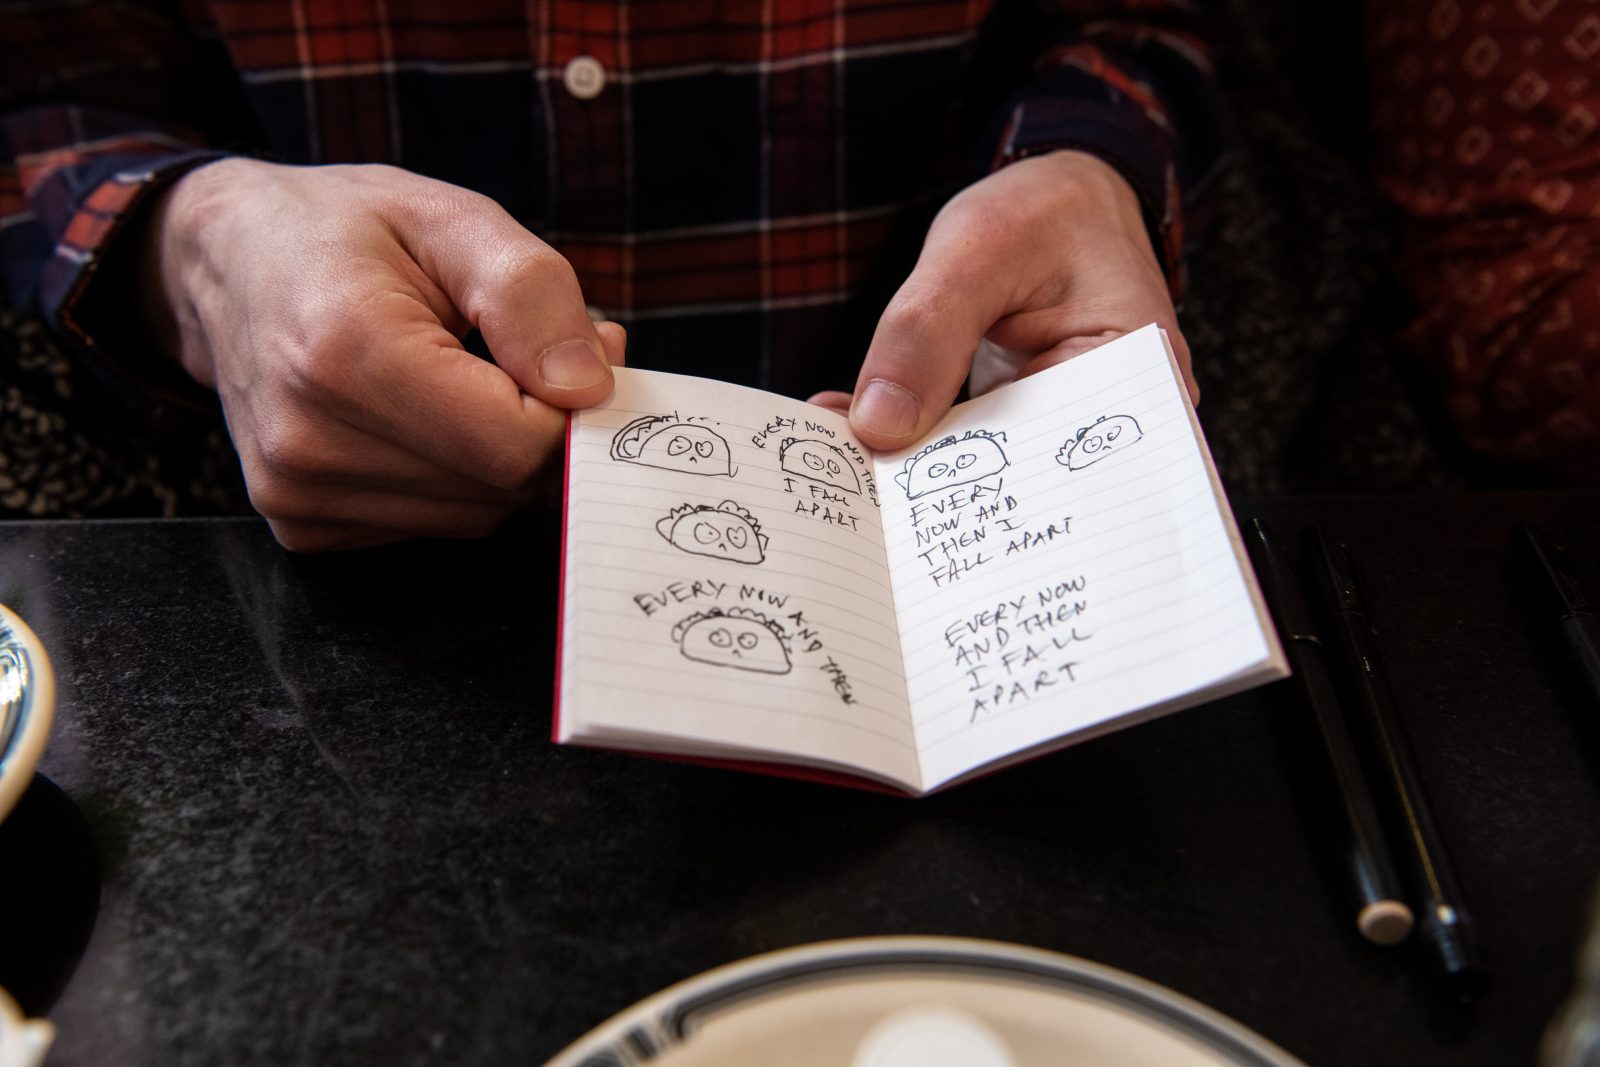 EVERY NOW AND THEN
I FALL
APART
EVERY NOW AND THEN
EVERY
NOW AND
THEN I
FALL APART
EVERY NOW
AND THEN
I FALL
APART